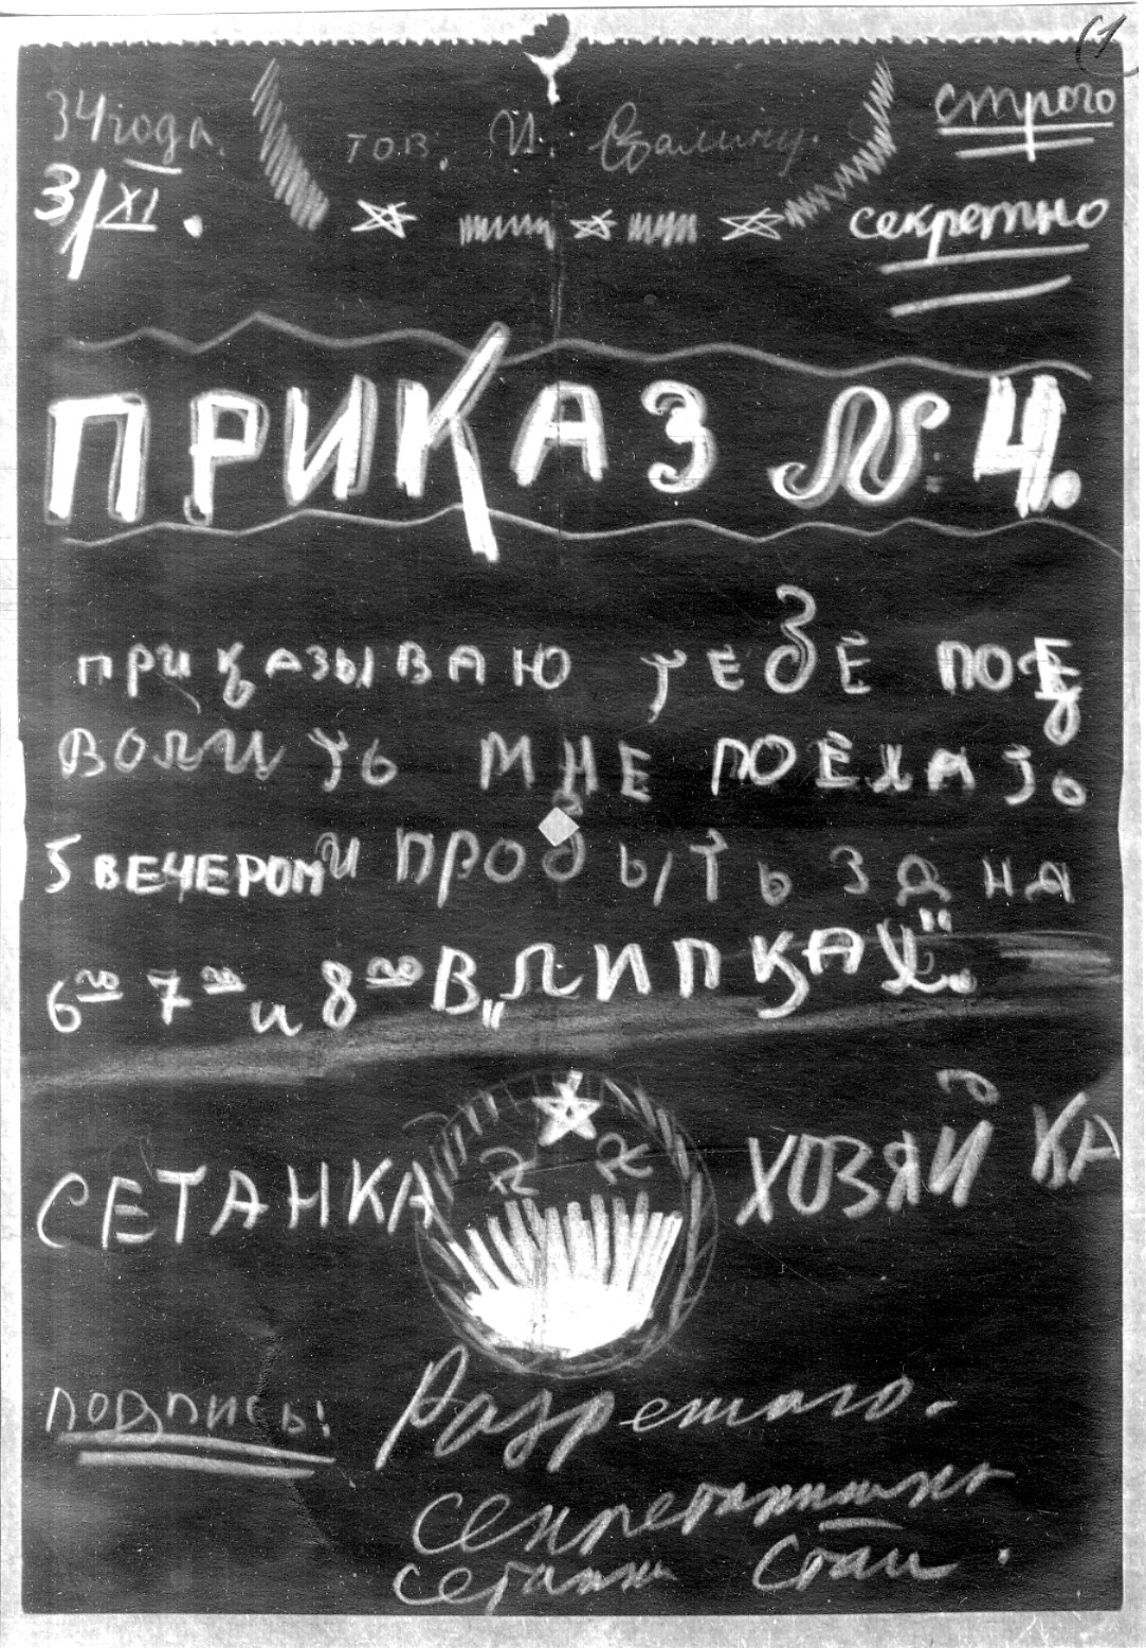 (1
34 года.
3/XI.
тов. И. Сталину.
строго
секретно
ПРИКАЗ № 4.
ПРИКАЗЫВАЮ ТЕБЕ ПОЗ
ВОЛИТЬ МНЕ ПОЕХАТЬ
5 ВЕЧЕРОМ И ПРОБЫТЬ ЗА НА
6го 7го и 8го В „ЛИПКАХ“.
СЕТАНКА ХОЗЯЙКА
ПОДПИСЬ!
Разрешаю.
Секретаришка
Сетанки Стали.